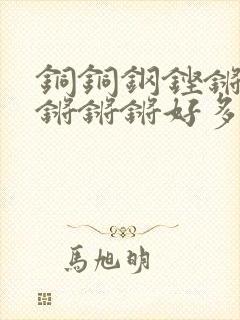 銅銅鋼鏗鏘
鏘鏘鏘好多
馬旭明